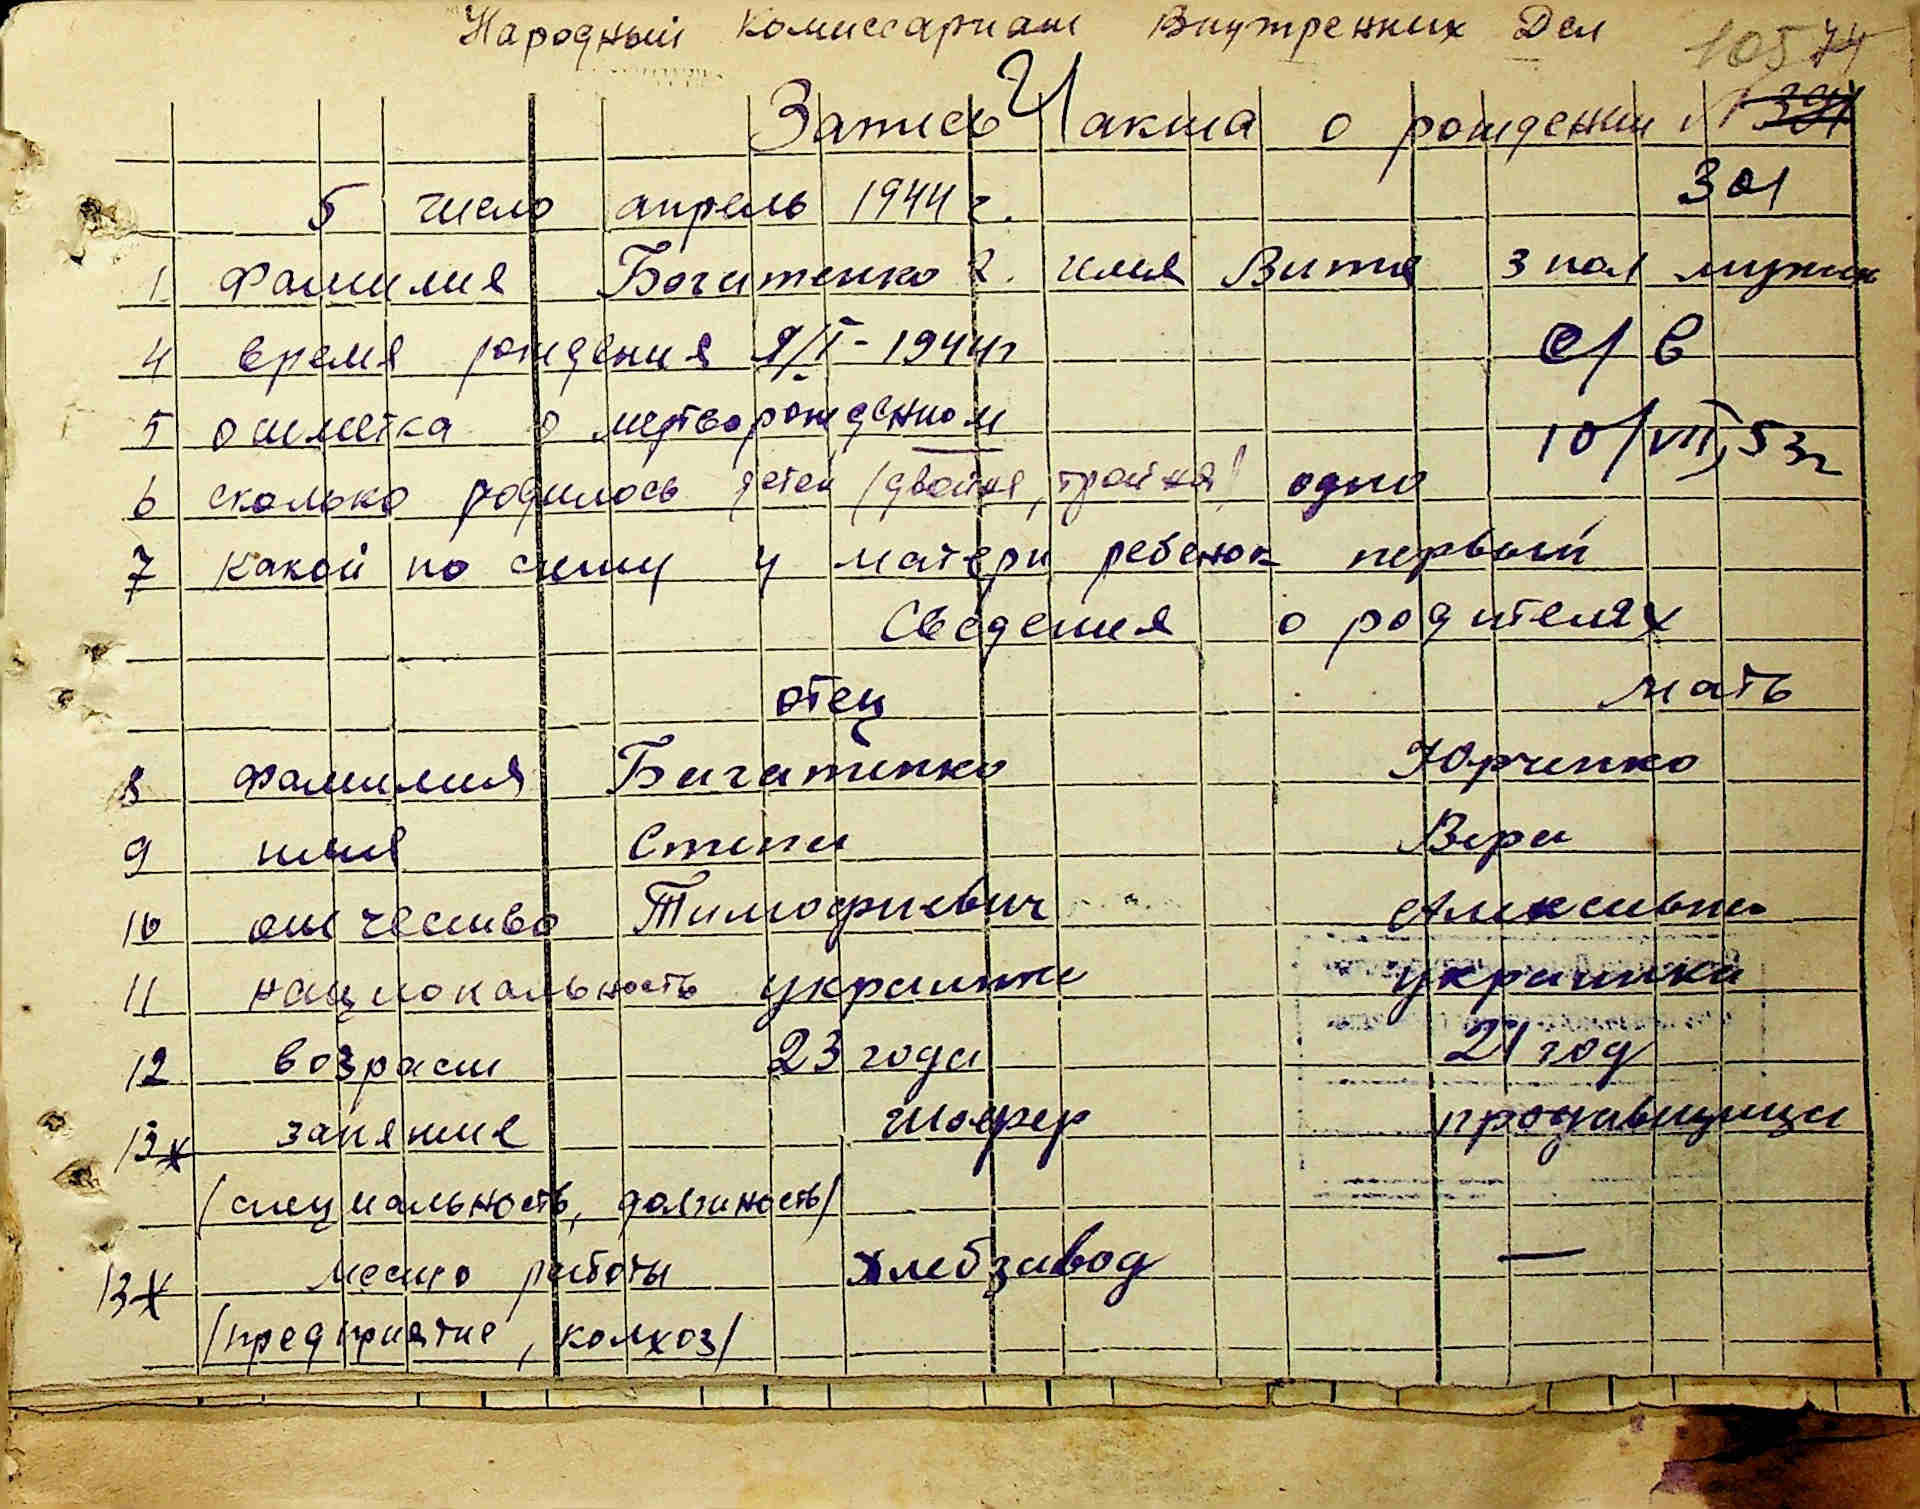 Народный Комиссариат Внутренних Дел
10574
Запись акта о рождении № 391
301
5 число апрель 1944 г.
1 Фамилия Богатенко 2. имя Витя 3 пол мужск
4 время рождения 9/I - 1944 г
с/в
5 отметка о мертворожденном
10/VII, 53 г
6 сколько родилось детей /двойня, тройня/ одно
7 Какой по счету у матери ребенок первый
Сведения о родителях
отец мать
8 фамилия Богатенко Юрченко
9 имя Степан Вера
10 отчество Тимофиевич Алексивна
11 национальность украинец украинка
12 возраст 23 года 21 год
13х занятие шофер продавщица
/специальность, должность/
13х место работы хлебзавод —
/предприятие, колхоз/